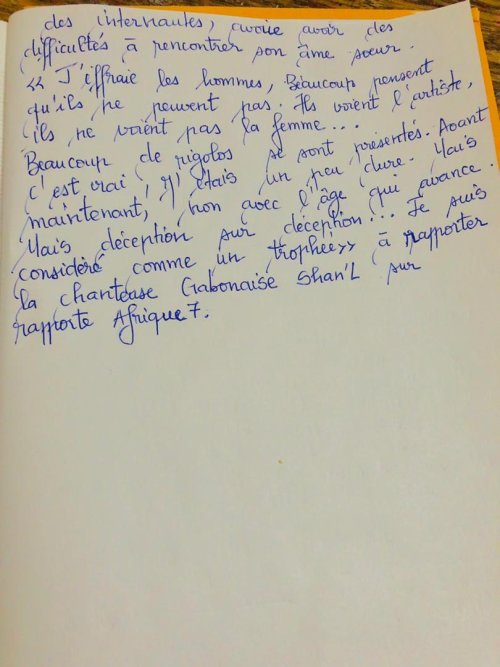 des internautes, avoue avoir des
difficultés à rencontrer son âme sœur.
« J'effraie les hommes, Beaucoup pensent
qu'ils ne peuvent pas. Ils voient l'artiste,
ils ne voient pas la femme...
Beaucoup de rigolos se sont présentés. Avant
c'est vrai, j'étais un peu dure. Mais
maintenant, non avec l'âge qui avance.
Mais déception sur déception... Je suis
considéré comme un trophée» à rapporter
la chanteuse Gabonaise Shan'L sur
rapporte Afrique 7.